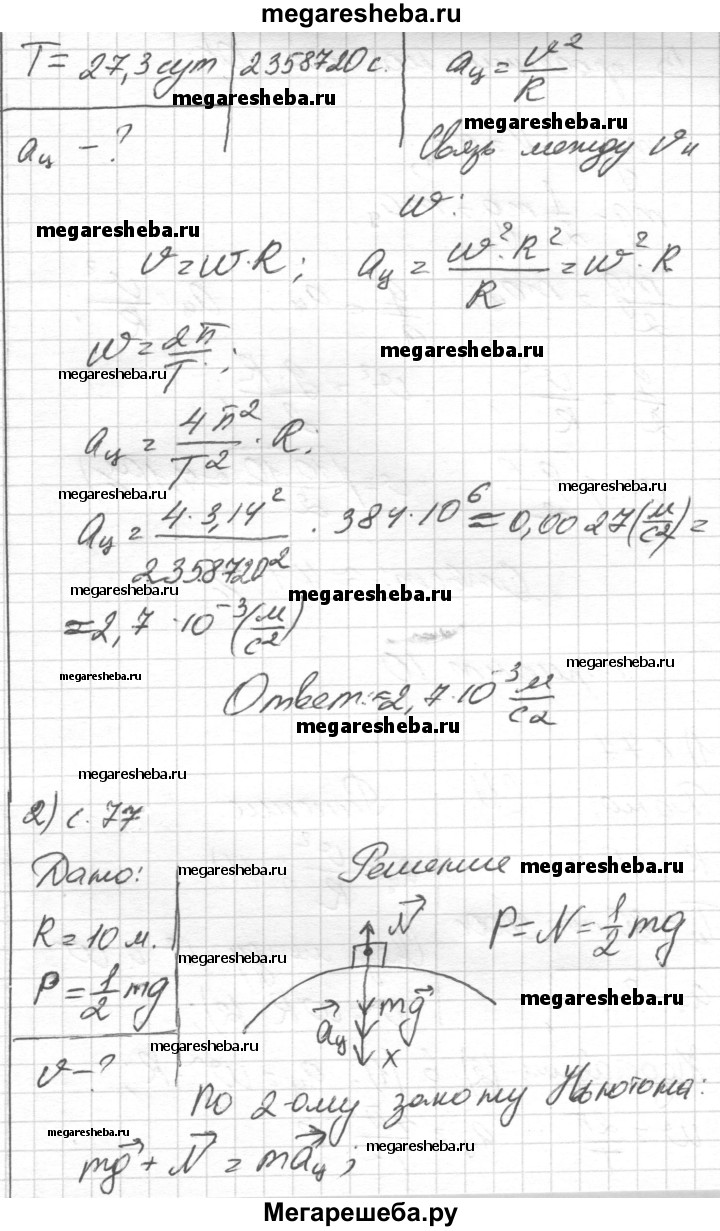 megaresheba.ru
T = 27,3 сут | 2358720 с. | aц = v²/R
megaresheba.ru
aц – ? megaresheba.ru
Связь между v и
ω:
megaresheba.ru
v = ω·R; aц = ω²·R²/R = ω²·R
ω = 2π/T; megaresheba.ru
megaresheba.ru
aц = 4π²/T² · R;
megaresheba.ru megaresheba.ru
aц = 4·3,14²/2358720² · 384·10⁶ = 0,0027(м/с²) =
megaresheba.ru megaresheba.ru
= 2,7·10⁻³(м/с²)
megaresheba.ru megaresheba.ru
Ответ: ≈2,7·10⁻³ м/с²
megaresheba.ru
megaresheba.ru
2) с. 77
Дано: megaresheba.ru Решение megaresheba.ru
R = 10 м. N⃗ P = N = ½mg
megaresheba.ru
P = ½mg mg⃗ megaresheba.ru
a⃗ц
megaresheba.ru x
v – ?
По 2-ому закону Ньютона:
megaresheba.ru
mg⃗ + N⃗ = ma⃗ц; megaresheba.ru
Мегарешеба.ру